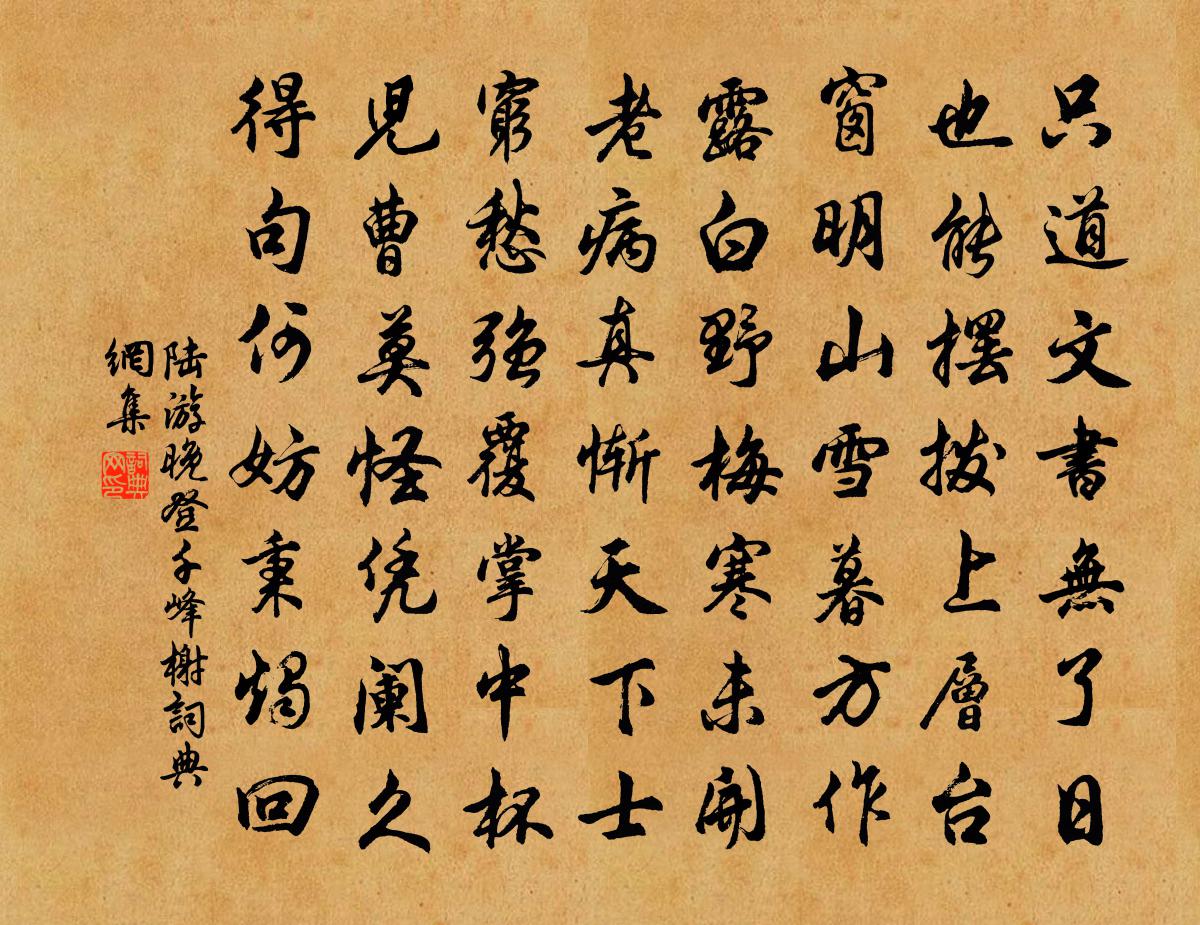 只道文書無了日
也能擺撥上層台
窗明山雪暮方作
露白野梅寒未開
老病真慚天下士
窮愁強覆掌中杯
児曹莫怪凭闌久
得句何妨秉燭回
陸游晚登千峰榭詞典
網集
詞典网印